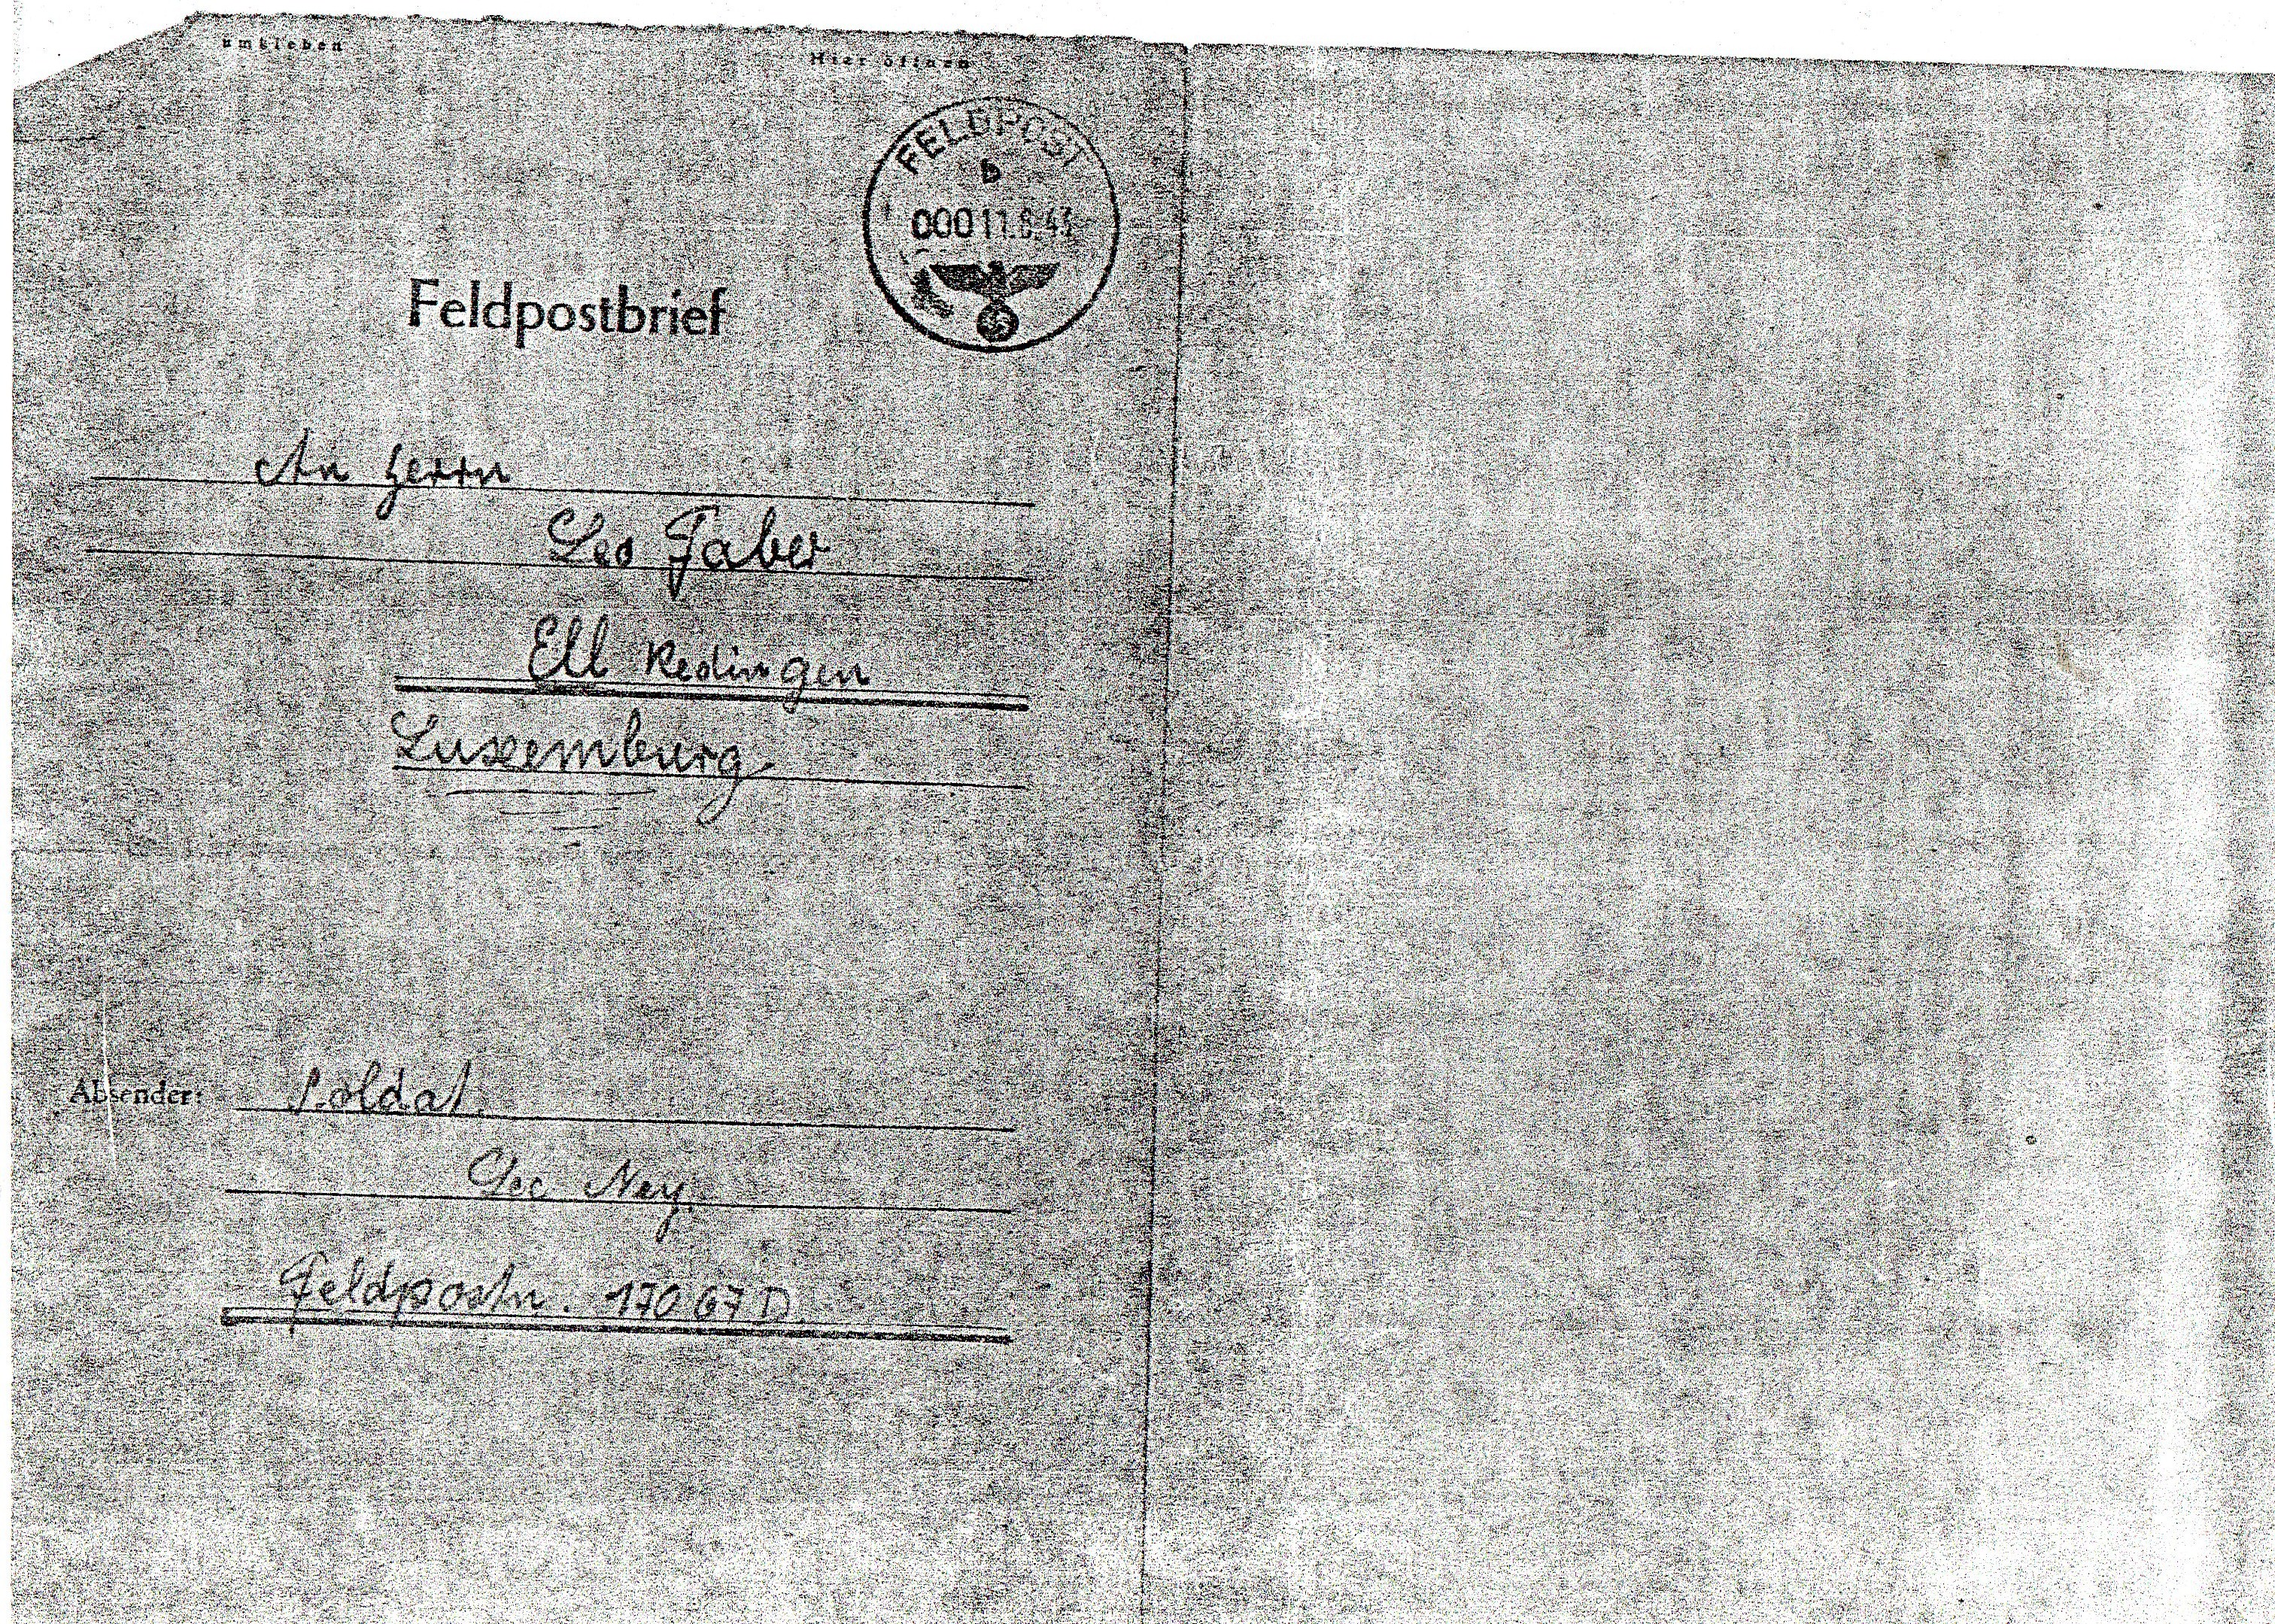 umkleben
Hier öffnen
FELDPOST
b
000 11.8.43
Feldpostbrief
An Herrn
Leo Faber
Ell Redingen
Luxemburg
Absender: Soldat
Geo Ney.
Feldpostn. 17067 D.